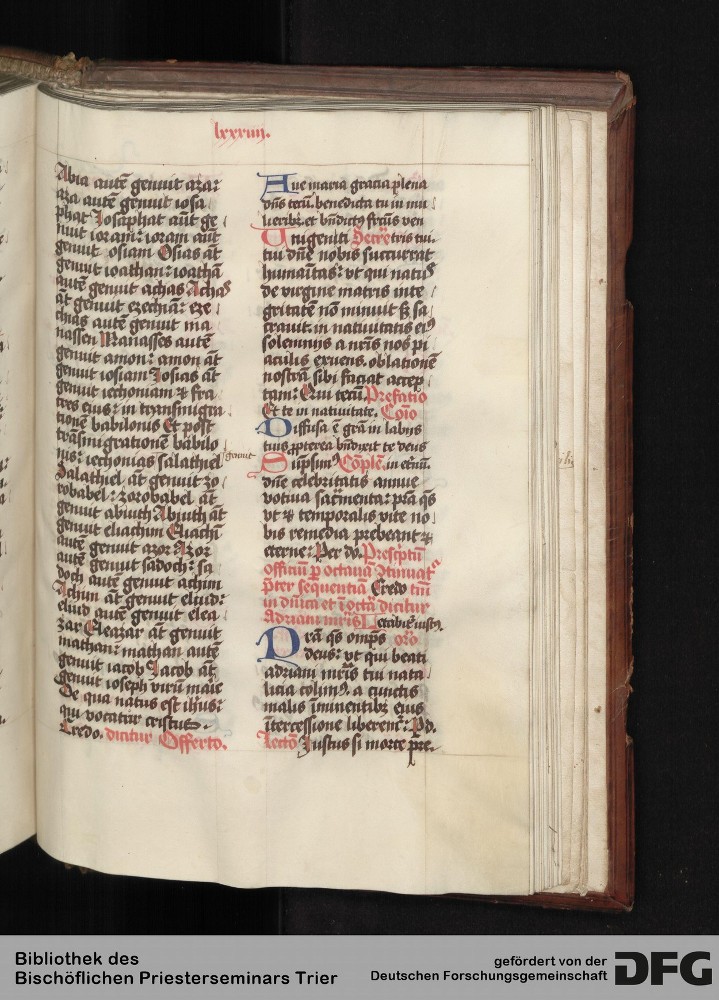 lxxxiiii.
Abia autē genuit azar
aza autē genuit iosa
phat Iosaphat aūt ge
nuit ioram: ioram aūt
genuit osiam Osias āt
genuit ioathan: ioathā
autē genuit achas Achas
āt genuit ezechiā: eze
chias autē genuit ma
nassen Manasses autē
genuit amon: amon āt
genuit iosiam Iosias āt
genuit iechoniam & fra
tres eius: in transmigra
tionē babilonis Et post
trāsmigrationē babilo
nis: iechonias salathiel genuit
Salathiel āt genuit zo
robabel: zorobabel āt
genuit abiuth Abiuth āt
genuit eliachim Eliachī
autē genuit azor Azor
autē genuit sadoch: sa
doch autē genuit achim
Achim āt genuit eliud:
eliud autē genuit elea
zar Eleazar āt genuit
mathan: mathan autē
genuit iacob Iacob āt
genuit ioseph virū marie
De qua natus est ihus:
qui vocatur cristus.
Credo. dicitur Offerto.
Aue maria gracia plena
dns tecū. benedicta tu in mu
lieribz. et bndictꝰ fructus ven
Unigeniti Secre tris tui.
tui dne nobis succurrat
humanitas: vt qui natus
de virgine matris inte
gritatē nō minuit sz sa
crauit. in natiuitatis eiꝰ
solemnijs a nris nos pi
aculis exuens. oblationē
nostrā sibi faciat accep
tam: Qui tecū. Prefatio
Et te in natiuitate. Coio
Diffusa ē grā in labijs
tuis ppterea bndixit te deus
Suipsimꝰ Cōplē. in eternū.
dne celebritatis annue
votiua sacrmenta: pta qs
vt & temporalis vite no
bis remedia prebeant &
eterne: Per do. Prescptū
officiū p octauā ꝯtinuatʳ
pter sequentiā Credo tm̄
in dnica et ī octa dicitur
Adriani mris Letabitʳ iustꝰ.
Prā qs omps oro
deus: vt qui beati
adriani mris tui nata
licia colimꝰ. a cunctis
malis īminentibz eius
ītercessione liberemʳ: Pd.
lectō Iustus si morte pre.
ihi
Bibliothek des
Bischöflichen Priesterseminars Trier
gefördert von der
Deutschen Forschungsgemeinschaft
DFG